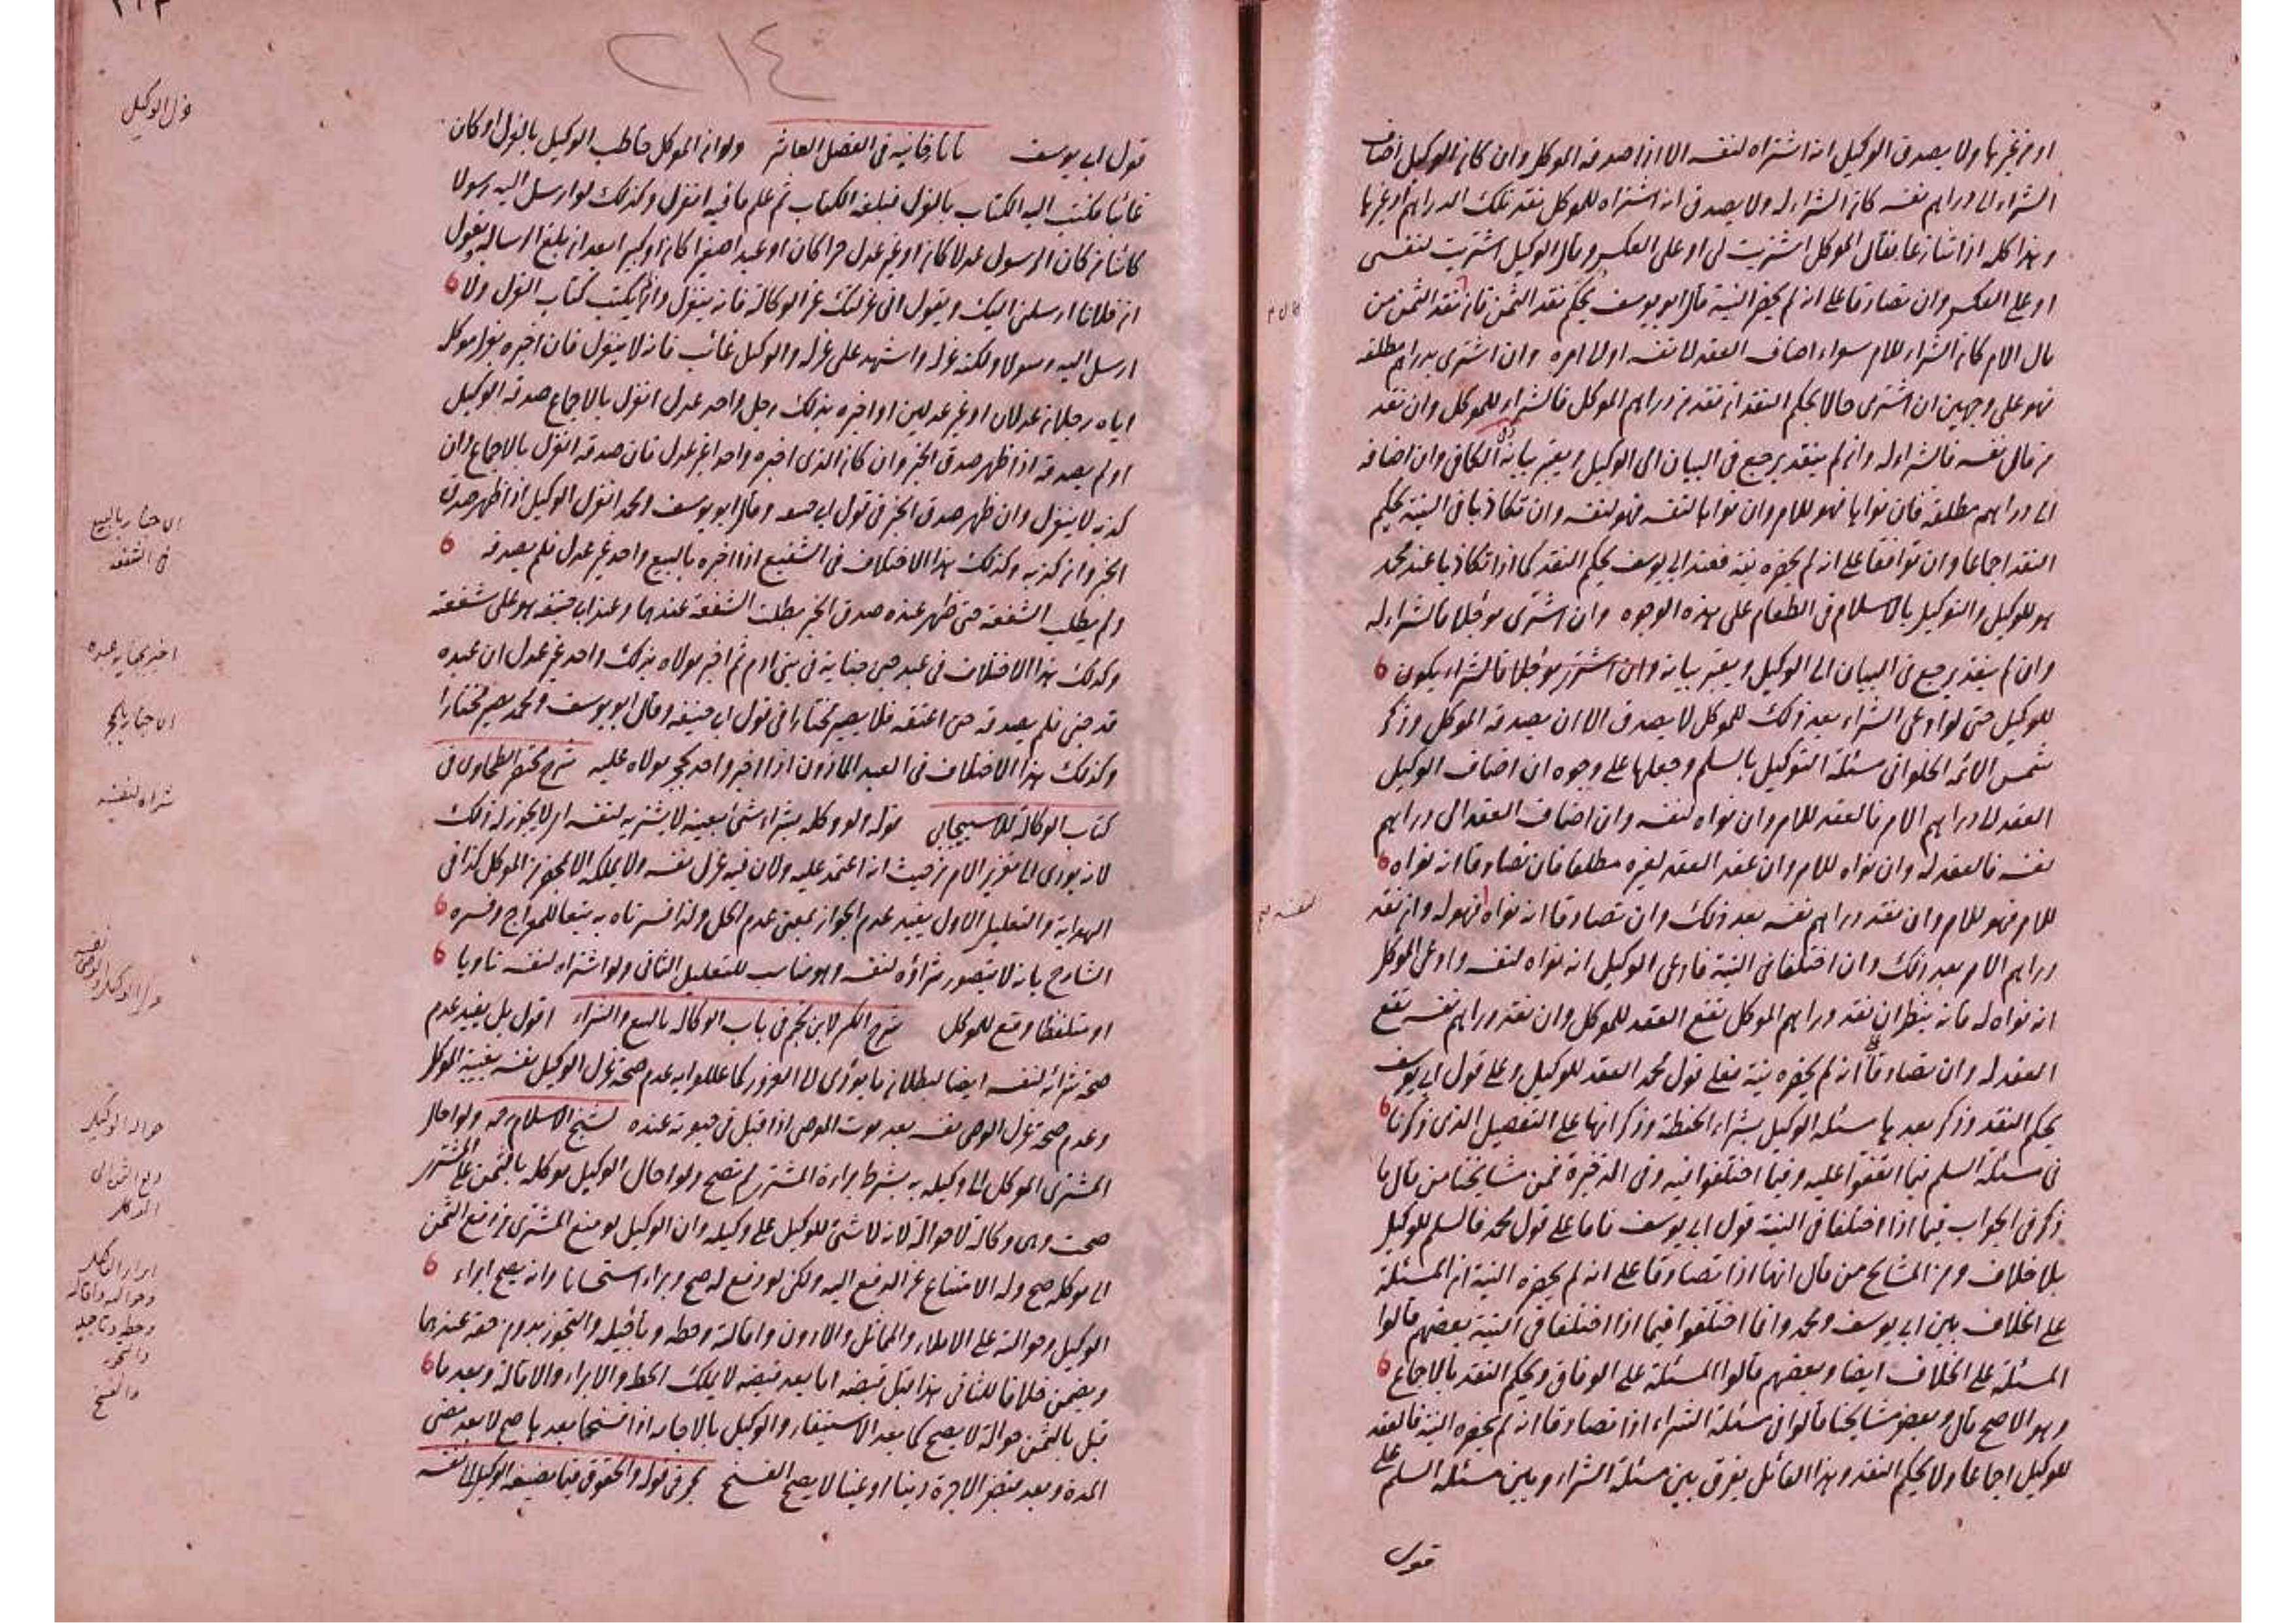 او من غيرها ولا يصدق الوكيل انه اشتراه لنفسه الا اذا صدقه الموكل وان كان الوكيل اضاف
الشراء الى دراهم نفسه كان الشراء له ولا يصدق انه اشتراه للموكل نقد تلك الدراهم او غيرها
وهذا كله اذا تنازعا فقال الموكل اشتريت لى او على العكس وقال الوكيل اشتريت لنفسى
او على العكس وان تصادقا على انه لم يحضر النية قال ابو يوسف يحكم نقد الثمن فان نقد الثمن من
مال الامر كان الشراء للامر سواء اضاف العقد لنفسه او الى امره وان اشترى بدراهم مطلقه
فهو على وجهين ان اشترى حالا يحكم النقد ان نقد من دراهم الموكل فالشراء للموكل وان نقد
من مال نفسه فالشراء له وان لم ينقد يرجع فى البيان الى الوكيل ويعتبر بيانه الكافى وان اضافه
الى دراهم مطلقة فان نواها فهو للامر وان نواها لنفسه فهو لنفسه وان تكاذبا فى النية يحكم
النقد اجماعا وان توافقا على انه لم يحضره نية فعند ابى يوسف يحكم النقد كما اذا تكاذبا عند محمد
هو للوكيل والتوكيل بالاسلام فى الطعام على هذه الوجوه وان اشترى مؤجلا فالشراء له
وان لم ينقد يرجع فى البيان الى الوكيل ويعتبر بيانه وان اشترى مؤجلا فالشراء يكون
للوكيل حتى لو ادعى الشراء بعد ذلك للموكل لا يصدق الا ان يصدقه الموكل وذكر
شمس الائمة الحلوانى مسئلة التوكيل بالسلم وجعلها على وجوه ان اضاف الوكيل
العقد الى دراهم الامر فالعقد للامر وان نواه لنفسه وان اضاف العقد الى دراهم
نفسه فالعقد له وان نواه للامر وان عقد العقد لغيره مطلقا فان تصادقا انه نواه
للامر فهو للامر وان نقد دراهم نفسه بعد ذلك وان تصادقا انه نواه فهو له وان نقد
نفسه صح
دراهم الامر بعد ذلك وان اختلفا فى النية فادعى الوكيل انه نواه لنفسه وادعى الموكل
انه نواه له فانه ينظر ان نقد دراهم الموكل تقع العقد للموكل وان نقد دراهم نفسه يقع
العقد له وان تصادقا انه لم يحضره نية فعلى قول محمد العقد للوكيل وعلى قول ابى يوسف
يحكم النقد وذكر بعدها مسئله الوكيل بشراء الحنطة وذكر انها على التفصيل الذى ذكرنا
فى مسئلة السلم فيما اتفقوا عليه وفيما اختلفوا فيه وفى الذخيرة فمن مشايخنا من قال ما
ذكر فى الجواب فيما اذا اختلفا فى النية قول ابى يوسف فاما على قول محمد فالسلم للوكيل
بلا خلاف ومن المشايخ من قال انهما اذا تصادقا على انه لم يحضره النية ان المسئلة
على الخلاف بين ابى يوسف ومحمد وانما اختلفوا فيما اذا اختلفا فى النية بعضهم قالوا
المسئلة على الخلاف ايضا وبعضهم قالوا المسئلة على الوفاق ويحكم النقد بالاجماع
وهو الاصح قال وبعض مشايخنا قالوا فى مسئلة الشراء اذا تصادقا انه لم يحضره النية فالعقد
للوكيل اجماعا ولا يحكم النقد وهذا القائل يفرق بين مسئلة الشراء وبين مسئلة السلم على
قول
٢١٤
قول ابى يوسف تاتارخانيه فى الفصل العاشر ولو ان الموكل خاطب الوكيل بالعزل او كان
عزل الوكيل
غائبا فكتب اليه الكتاب بالعزل فبلغه الكتاب ثم علم ما فيه انعزل وكذلك لو ارسل اليه رسولا
كائنا من كان الرسول عدلا كان او غير عدل حرا كان او عبدا صغيرا كان او كبيرا بعد ان بلغ الرسالة ويقول
ان فلانا ارسلنى اليك ويقول انى عزلتك عن الوكالة فانه ينعزل وان لم يكتب كتاب العزل ولا
ارسل اليه رسولا ولكنه عزله واشهد على عزله والوكيل غائب فانه لا ينعزل فان اخبره بعزل موكل
اياه رجلان عدلان او غير عدلين او اخبره بذلك رجل واحد عدل انعزل بالاجماع صدقه الوكيل
او لم يصدقه اذا ظهر صدق الخبر وان كان الذى اخبره واحدا غير عدل فان صدقه انعزل بالاجماع وان
كذبه لا ينعزل وان ظهر صدق الخبر فى قول ابى حنيفة وقال ابو يوسف ومحمد انعزل الوكيل اذا ظهر صدق
الاخبار بالبيع
فى الشفعة
الخبر وان كذبه وكذلك هذا الاختلاف فى الشفيع اذا اخبره بالبيع واحد غير عدل فلم يصدقه
ولم يطلب الشفعة حتى ظهر عنده صدق الخبر بطلت الشفعة عندهما وعند ابى حنيفة هو على شفعته
اخبر بجناية عبده
وكذلك هذا الاختلاف فى عبد جنى جناية فى بنى ادم ثم اخبر مولاه بذلك واحد غير عدل ان عبده
قد جنى فلم يصدقه حتى اعتقه فلا يصير مختارا فى قول ابى حنيفة وقال ابو يوسف ومحمد يصير مختارا
الاخبار بالحجر
وكذلك هذا الاختلاف فى العبد الماذون اذا اخبر واحد بحجر مولاه عليه شرح مختصر الطحاوى فى
كتاب الوكالة للاسبيجابى قوله ولو وكله بشراء شئ بعينه لا يشتريه لنفسه اى لا يجوز له ذلك
شراه لنفسه
لانه يؤدى الى تغرير الامر من حيث انه اعتمد عليه ولان فيه عزل نفسه ولا يملكه الا بمحضر من الموكل كذا فى
الهداية والتعليل الاول يفيد عدم الجواز بمعنى عدم الحل ولذا فسرناه به تبعا للمعراج وفسره
الشارح بانه لا يتصور شراؤه لنفسه وهو مناسب للتعليل الثانى ولو اشتراه لنفسه ناويا
او متلفظا وقع للموكل شرح الكنز لابن نجيم فى باب الوكالة بالبيع والشراء اقول بل يفيد عدم
عزل الوكيل والوصى نفسه
صحة شرائه لنفسه ايضا لبطلان ما يؤدى الى الغرور كما عللوا به عدم صحة عزل الوكيل نفسه بغيبة الموكل
وعدم صحة عزل الوصى نفسه بعد موت الموصى اذا قبل فى حيوته عنده لشيخ الاسلام رحمه ولو احال
حوالة الوكيل
المشترى الموكل الى وكيله به بشرط براءة المشترى لم تصح ولو احال الوكيل موكله بالثمن على المشترى
دفع الثمن الى
الموكل
صحت وهى وكالة لا حوالة لانه لا شئ للوكيل على وكيله وان الوكيل لو منع المشترى من دفع الثمن
الى موكله صح وله الامتناع عن الدفع اليه ولكن لو دفع له صح وبراء استحسانا وانه يصح ابراء
ابراء الوكيل
وحوالته واقالته
وحطه وتاجيله
والتجوز
والفسخ
الوكيل وحوالته على الاملاء والمماثل والادون واقالته وحطه وتأجيله والتجوز بدون حقه عندهما
ويضمن خلافا للثانى هذا قبل قبضه اما بعد قبضه لا يملك الحط والابراء والاقالة وبعد ما
قبل بالثمن حوالة لا يصح كما بعد الاستيفاء والوكيل بالاجارة اذا فسخها بعدها صح لا بعد مضى
المدة وبعد قبض الاجرة دينا او عينا لا يصح الفسخ بحر فى قوله والحقوق فيما يضيفه الوكيل الى نفسه